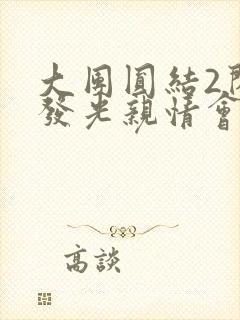 大團圓結2
發光親情會
高談